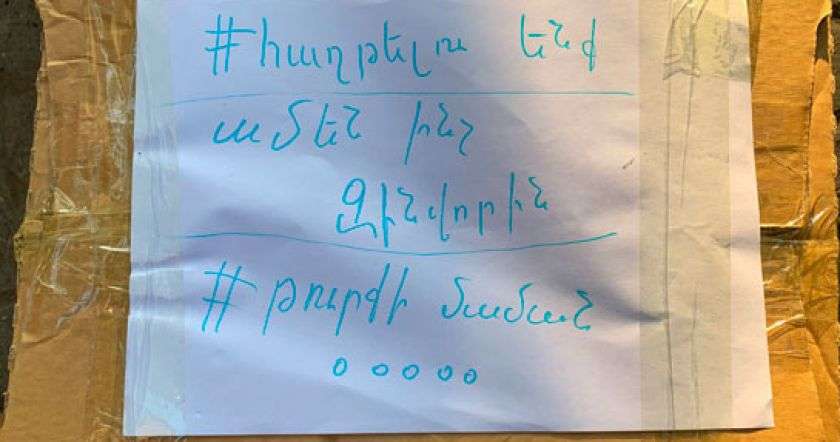 #հաղթելու ենք
ամեն ինչ
Զինվորին
#թուրքի մաման
օօօօօ